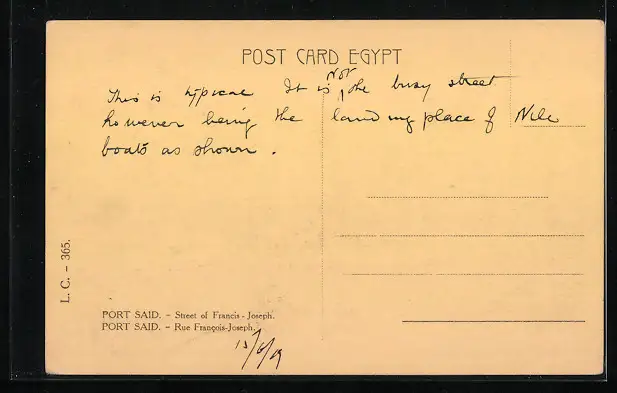 POST CARD EGYPT
This is typical It is NOT the busy street
however being the landing place of Nile
boats as shown.
L. C. - 365.
PORT SAID. - Street of Francis-Joseph.
PORT SAID. - Rue François-Joseph.